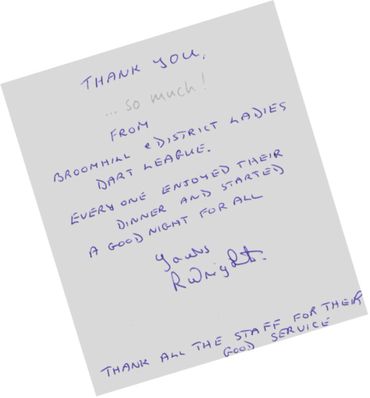 THANK YOU,
... so much!
FROM
BROOMHILL & DISTRICT LADIES
DART LEAGUE.
EVERYONE ENJOYED THEIR
DINNER AND STARTED
A GOOD NIGHT FOR ALL
Yours
R Wright.
THANK ALL THE STAFF FOR THEIR
GOOD SERVICE